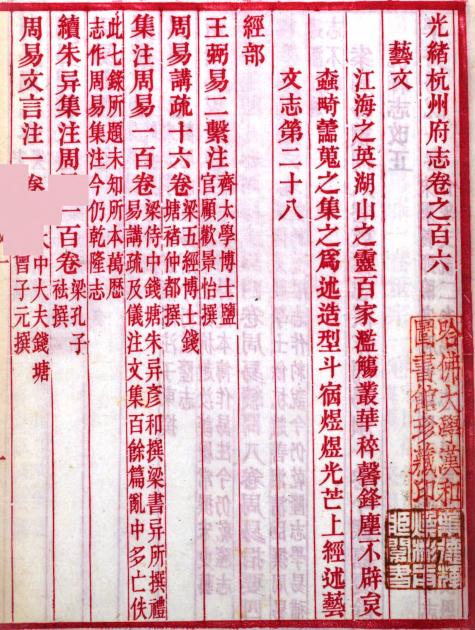 光緒杭州府志卷之百六
藝文
江海之英湖山之靈百家濫觴叢華稡馨鋒塵不辟爰
畸蒐之集之爲述造型斗宿煜煜光芒上經述藝
文志第二十八
經部
王弼易二繫注齊太學博士鹽
官顧歡景怡撰
周易講疏十六卷梁五經博士錢
塘褚仲都撰
集注周易一百卷梁侍中錢塘朱异彥和撰梁書异所撰禮
易講疏及儀注文集百餘篇亂中多亡佚
此七錄所題未知所本萬厤
志作周易集注今仍乾隆志
續朱异集注周一百卷梁孔子
袪撰
周易文言注一中大夫錢塘
曾子元撰
哈佛大學漢和
圖書館珍藏印